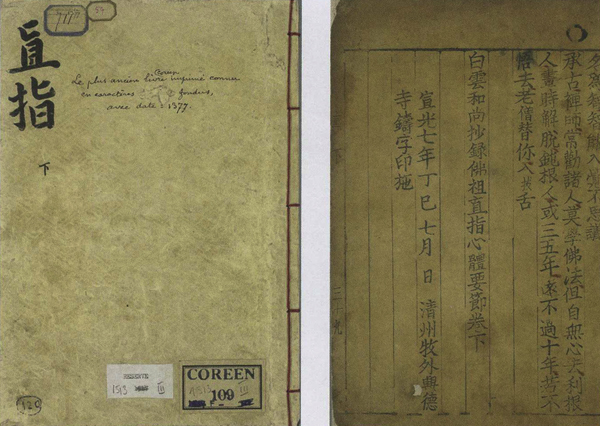 7187
直指
下
Le plus ancien livre coréen imprimé connu
en caractères fondus,
avec date = 1377.
RÉSERVE
COREEN
109
承古禪師常勸諸人莫學佛法但自無心去利根
人晝時解脫鈍根人或三五年遠不過十年若不
悟去老僧替你入拔舌
白雲和尚抄錄佛祖直指心體要節卷下
宣光七年丁巳七月 日 清州牧外興德
寺鑄字印施